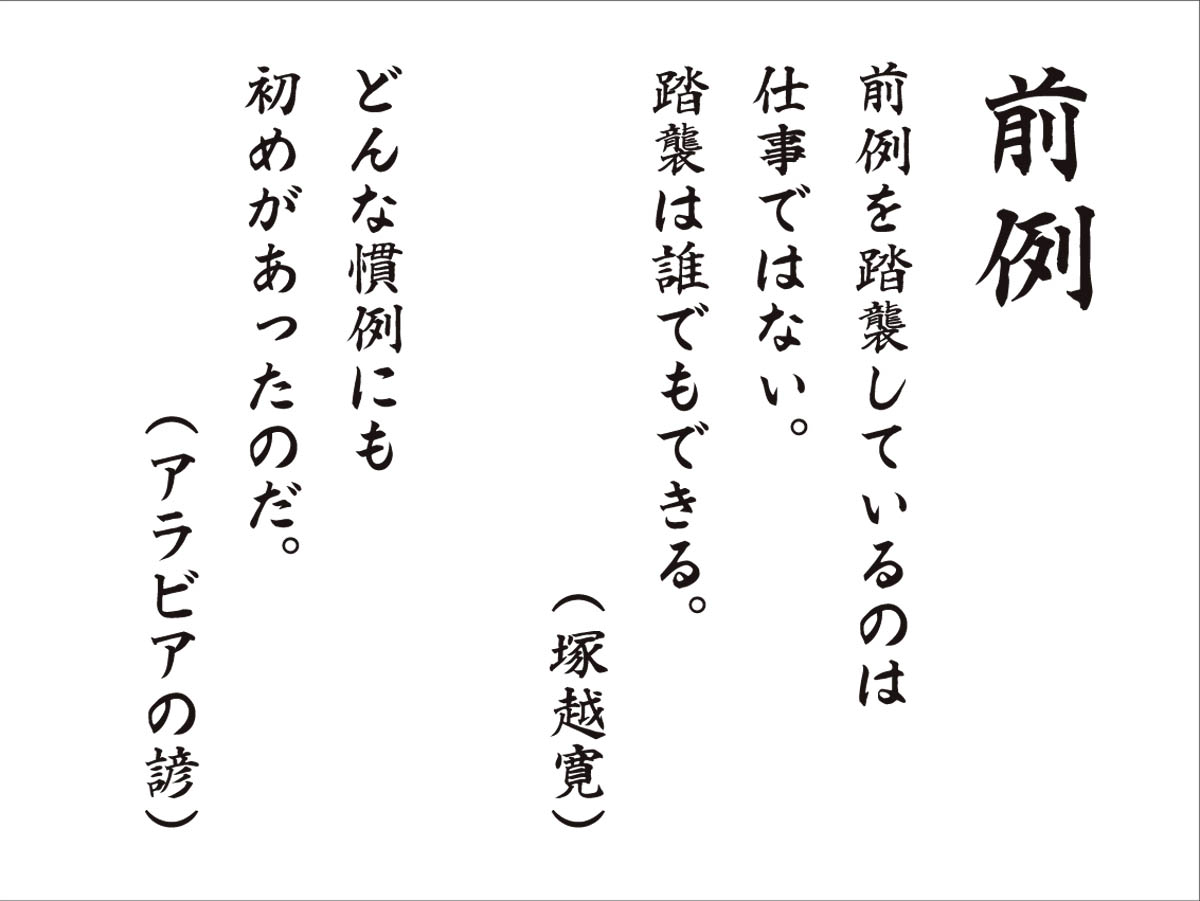 前例
前例を踏襲しているのは
仕事ではない。
踏襲は誰でもできる。
（塚越寛）
どんな慣例にも
初めがあったのだ。
（アラビアの諺）